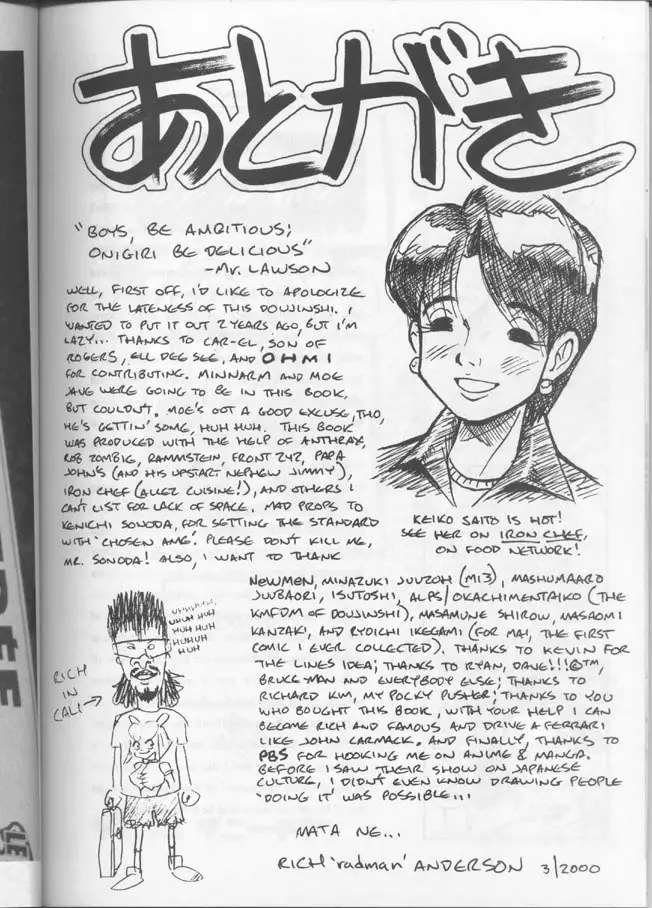 あとがき
"BOYS, BE AMBITIOUS;
ONIGIRI BE DELICIOUS"
-Mr. LAWSON
WELL, FIRST OFF, I'D LIKE TO APOLOGIZE
FOR THE LATENESS OF THIS DOUJINSHI. I
WANTED TO PUT IT OUT 2 YEARS AGO, BUT I'M
LAZY... THANKS TO CAR-EL, SON OF
ROGERS, ELL DEE SEE, AND OHMI
FOR CONTRIBUTING. MINNARM AND MOE
JAVE WERE GOING TO BE IN THIS BOOK,
BUT COULDN'T. MOE'S GOT A GOOD EXCUSE, THO,
HE'S GETTIN' SOME, HUH HUH. THIS BOOK
WAS PRODUCED WITH THE HELP OF ANTHRAX,
ROB ZOMBIE, RAMMSTEIN, FRONT 242, PAPA
JOHN'S (AND HIS UPSTART NEPHEW JIMMY),
IRON CHEF (ALLEZ CUISINE!), AND OTHERS I
CAN'T LIST FOR LACK OF SPACE. MAD PROPS TO
KENICHI SONODA, FOR SETTING THE STANDARD
WITH 'CHOSEN AME'. PLEASE DON'T KILL ME,
MR. SONODA! ALSO, I WANT TO THANK
KEIKO SAITO IS HOT!
SEE HER ON IRON CHEF,
ON FOOD NETWORK!
NEWMEN, MINAZUKI JUUZOH (M13), MASHUMAARO
JUUBAORI, ISUTOSHI, ALPS/OKACHIMENTAIKO (THE
KMFDM OF DOUJINSHI), MASAMUNE SHIROW, MASAOMI
KANZAKI, AND RYOICHI IKEGAMI (FOR MAI, THE FIRST
COMIC I EVER COLLECTED). THANKS TO KEVIN FOR
THE LINES IDEA; THANKS TO RYAN, DAVE!!!©™,
BRUCE MAN AND EVERYBODY ELSE; THANKS TO
RICHARD KIM, MY POCKY PUSHER; THANKS TO YOU
WHO BOUGHT THIS BOOK, WITH YOUR HELP I CAN
BECOME RICH AND FAMOUS AND DRIVE A FERRARI
LIKE JOHN CARMACK. AND FINALLY, THANKS TO
PBS FOR HOOKING ME ON ANIME & MANGA.
BEFORE I SAW THEIR SHOW ON JAPANESE
CULTURE, I DIDN'T EVEN KNOW DRAWING PEOPLE
'DOING IT' WAS POSSIBLE...
MATA NE...
RICH 'radman' ANDERSON 3/2000
UHUH HUH
HUH HUH
HUHUH
HUH
RICH
IN
CALI→